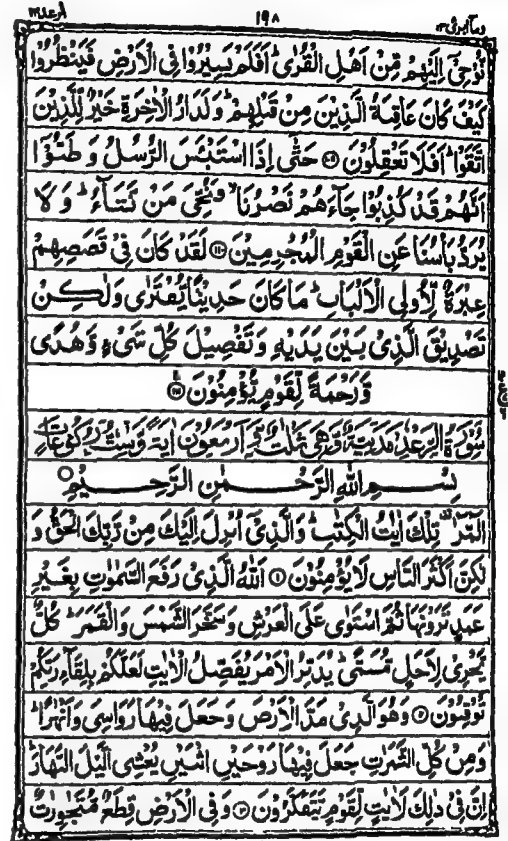 وما ابرئ ١٣ ١٩٨ الرعد ١٣
نُّوْحِىْٓ اِلَيْهِمْ مِّنْ اَهْلِ الْقُرٰى ؕ اَفَلَمْ يَسِيْرُوْا فِى الْاَرْضِ فَيَنْظُرُوْا
كَيْفَ كَانَ عَاقِبَةُ الَّذِيْنَ مِنْ قَبْلِهِمْ ؕ وَلَدَارُ الْاٰخِرَةِ خَيْرٌ لِّلَّذِيْنَ
اتَّقَوْا ؕ اَفَلَا تَعْقِلُوْنَ ﴿۱۰۹﴾ حَتّٰٓى اِذَا اسْتَيْـَٔسَ الرُّسُلُ وَ ظَنُّوْٓا
اَنَّهُمْ قَدْ كُذِبُوْا جَآءَهُمْ نَصْرُنَا ۙ فَنُجِّىَ مَنْ نَّشَآءُ ؕ وَ لَا
يُرَدُّ بَاْسُنَا عَنِ الْقَوْمِ الْمُجْرِمِيْنَ ﴿۱۱۰﴾ لَقَدْ كَانَ فِىْ قَصَصِهِمْ
عِبْرَةٌ لِّاُولِى الْاَلْبَابِ ؕ مَا كَانَ حَدِيْثًا يُّفْتَرٰى وَلٰـكِنْ
تَصْدِيْقَ الَّذِىْ بَيْنَ يَدَيْهِ وَ تَفْصِيْلَ كُلِّ شَىْءٍ وَّ هُدًى
وَّ رَحْمَةً لِّقَوْمٍ يُّؤْمِنُوْنَ ﴿۱۱۱﴾
سُوْرَةُ الرَّعْدِ مَدَنِيَّةٌ وَّهِىَ ثَلٰثٌ وَّ اَرْبَعُوْنَ اٰيَةً وَّسِتُّ رُكُوْعَاتٍ
بِسْمِ اللهِ الرَّحْمٰنِ الرَّحِيْمِ
الٓـمّٓرٰ ۟ تِلْكَ اٰيٰتُ الْكِتٰبِ ؕ وَالَّذِىْٓ اُنْزِلَ اِلَيْكَ مِنْ رَّبِّكَ الْحَقُّ وَ
لٰكِنَّ اَكْثَرَ النَّاسِ لَا يُؤْمِنُوْنَ ﴿۱﴾ اَللّٰهُ الَّذِىْ رَفَعَ السَّمٰوٰتِ بِغَيْرِ
عَمَدٍ تَرَوْنَهَا ثُمَّ اسْتَوٰى عَلَى الْعَرْشِ وَ سَخَّرَ الشَّمْسَ وَالْقَمَرَ ؕ كُلٌّ
يَّجْرِىْ لِاَجَلٍ مُّسَمًّى ؕ يُدَبِّرُ الْاَمْرَ يُفَصِّلُ الْاٰيٰتِ لَعَلَّكُمْ بِلِقَآءِ رَبِّكُمْ
تُوْقِنُوْنَ ﴿۲﴾ وَهُوَ الَّذِىْ مَدَّ الْاَرْضَ وَجَعَلَ فِيْهَا رَوَاسِىَ وَاَنْهٰرًا ؕ
وَمِنْ كُلِّ الثَّمَرٰتِ جَعَلَ فِيْهَا زَوْجَيْنِ اثْنَيْنِ يُغْشِى الَّيْلَ النَّهَارَ ؕ
اِنَّ فِىْ ذٰلِكَ لَاٰيٰتٍ لِّقَوْمٍ يَّتَفَكَّرُوْنَ ﴿۳﴾ وَفِى الْاَرْضِ قِطَعٌ مُّتَجٰوِرٰتٌ